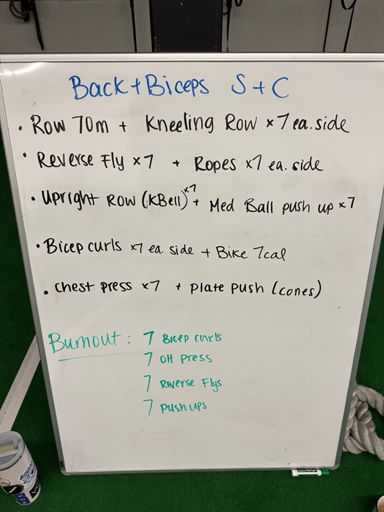 Back + Biceps S + C
• Row 70m + Kneeling Row x7 ea. side
• Reverse Fly x7 + Ropes x7 ea. side
• Upright Row (KBell) x7 + Med Ball push up x7
• Bicep curls x7 ea. side + Bike 7cal
• Chest press x7 + plate push (cones)
Burnout: 7 Bicep curls
7 OH press
7 Reverse Flys
7 pushups